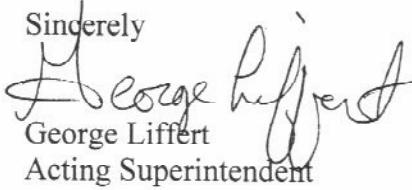 Sincerely
George Liffert
George Liffert
Acting Superintendent